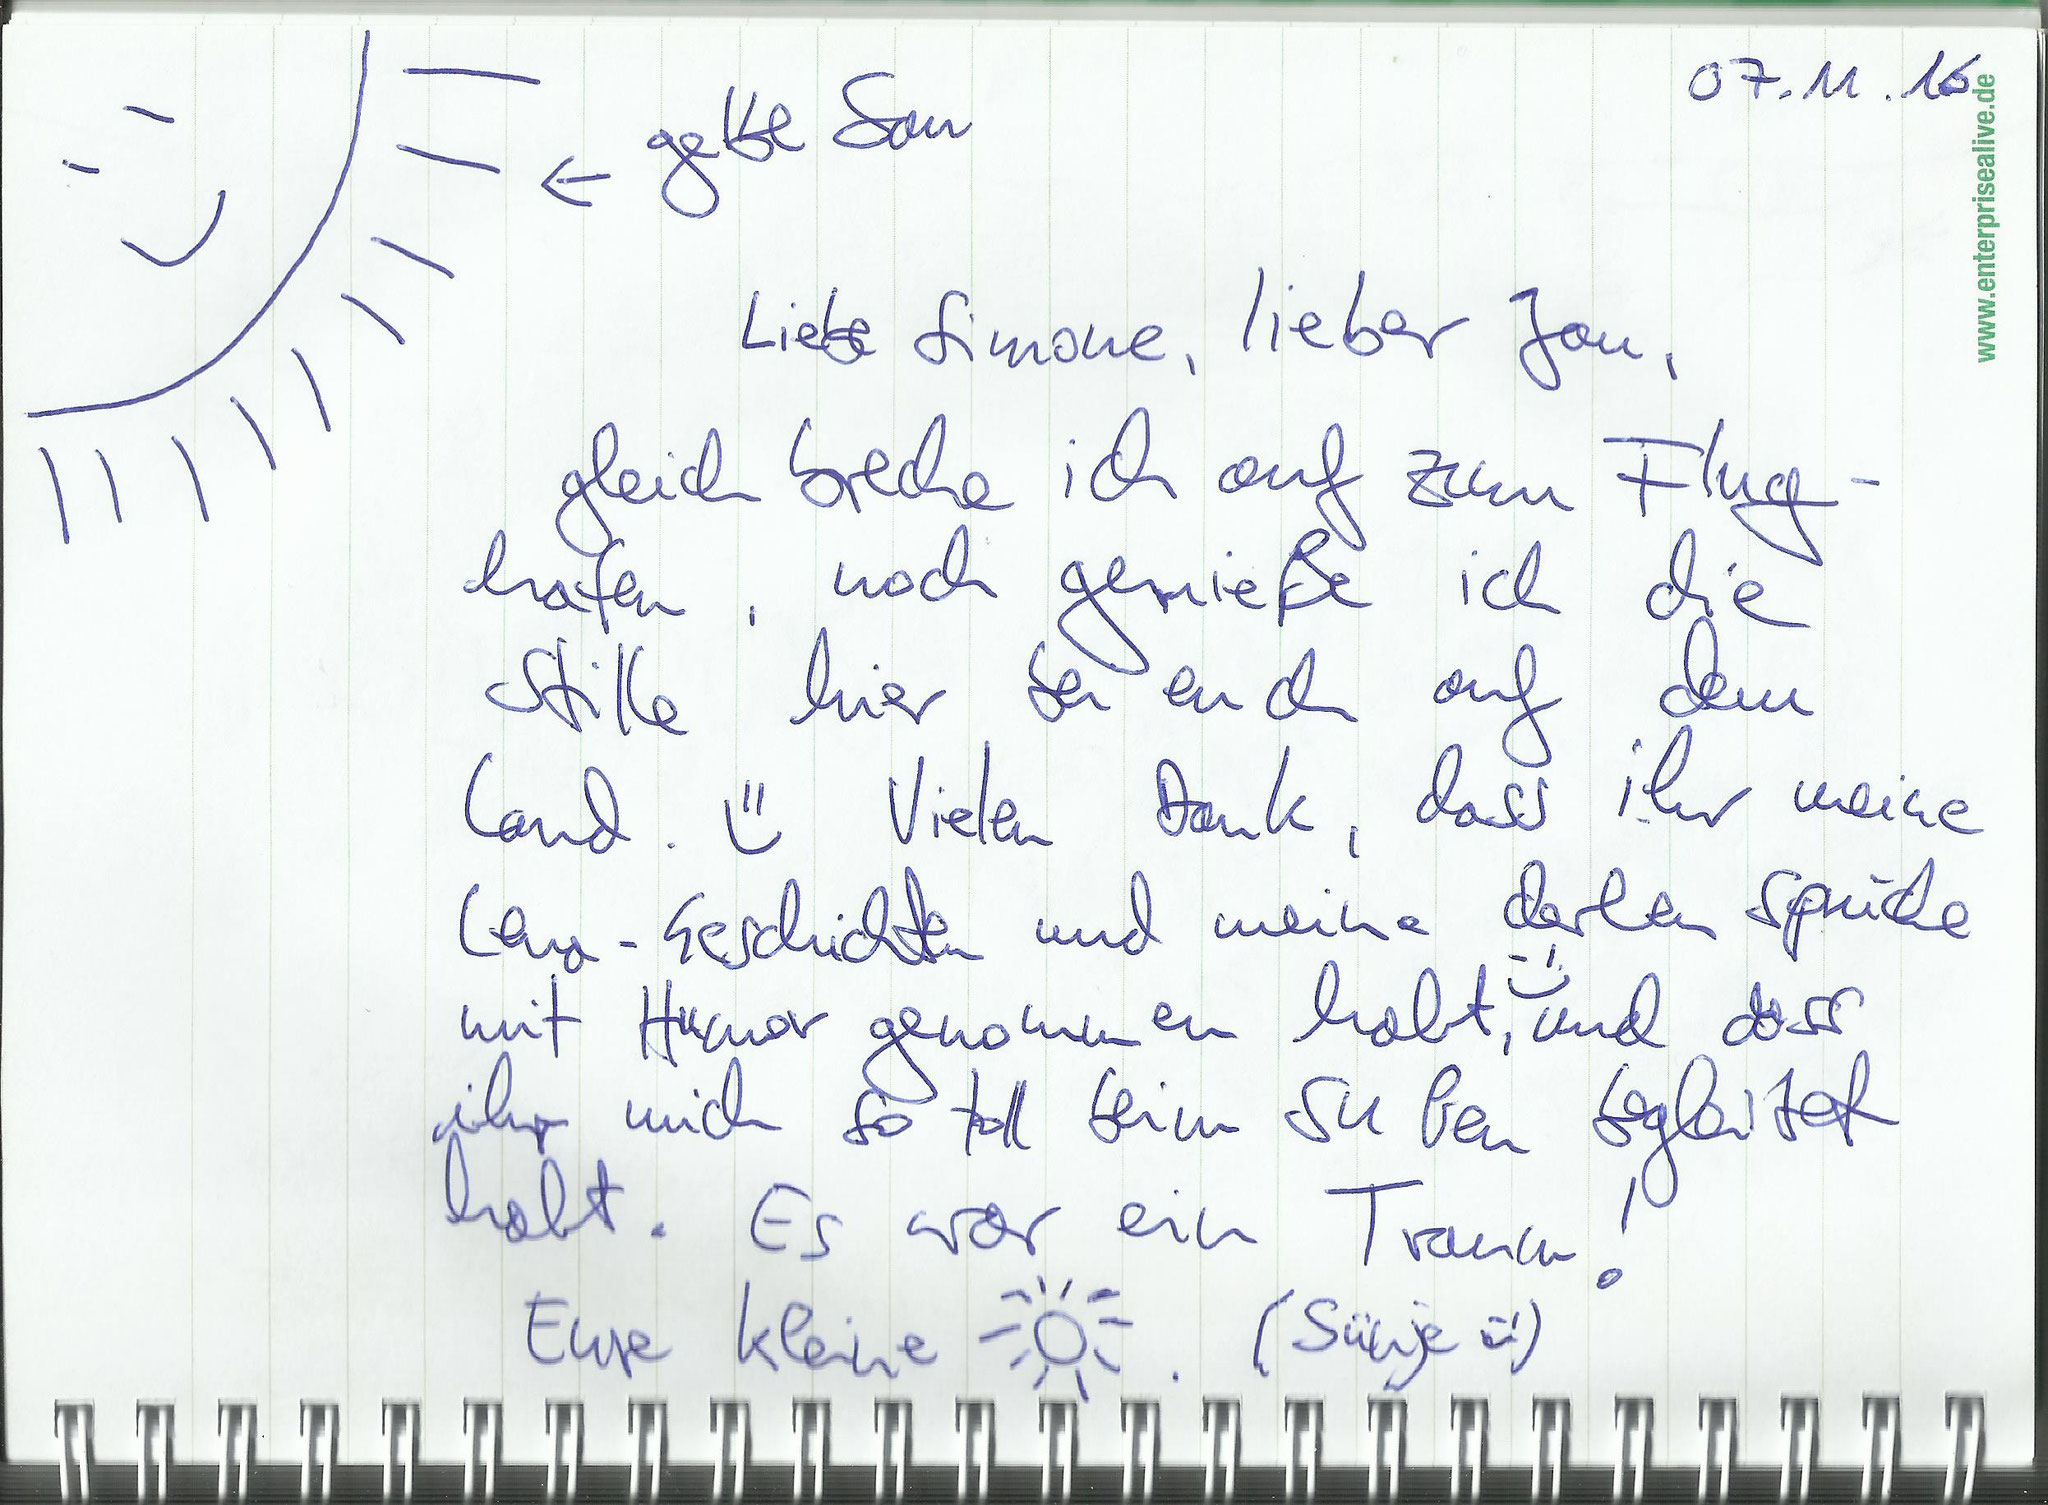 07.11.16
www.enterprisealive.de
← gelbe Son
Liebe Simone, lieber Jan,
gleich breche ich auf zum Flug-
hafen, noch genieße ich die
Stille hier bei euch auf dem
Land. Vielen Dank, dass ihr meine
Lena-Geschichten und meine derben Sprüche
mit Humor genommen habt, und dass
ihr mich so toll beim SUPen begleitet
habt. Es war ein Traum!
Eure kleine . (Sünje)